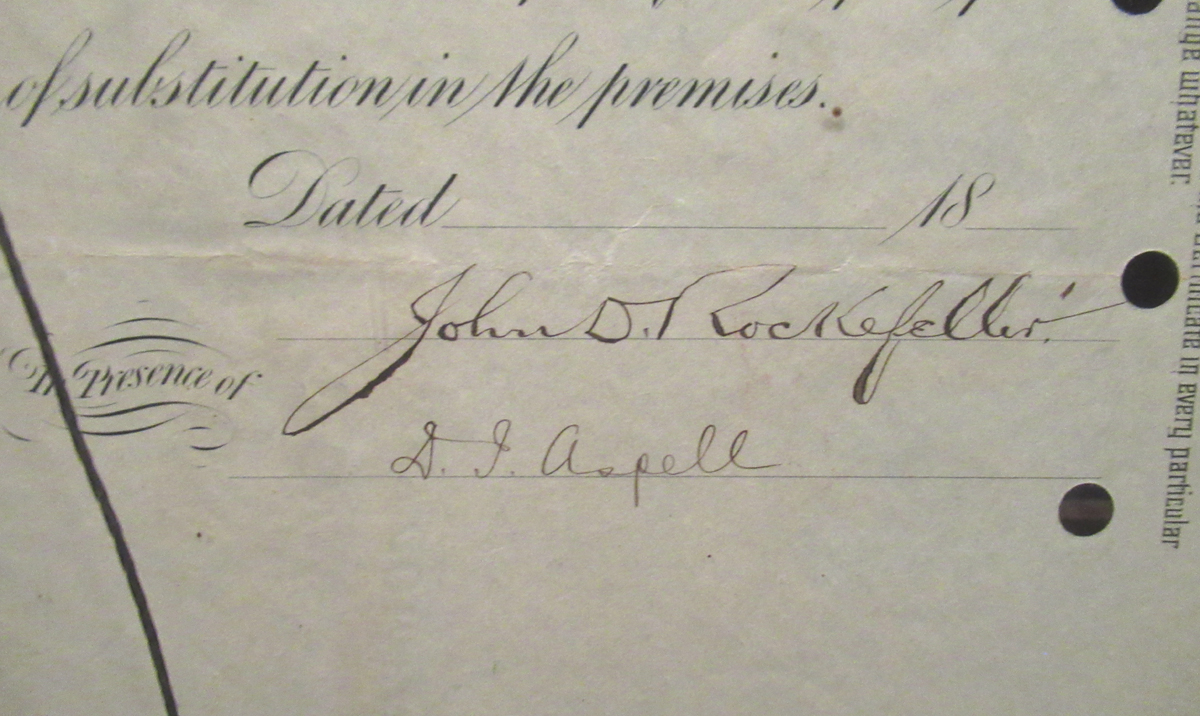 of substitution in the premises.
Dated 18
John D. Rockefeller
In Presence of
D. I. Aspell
whatever.
in every particular